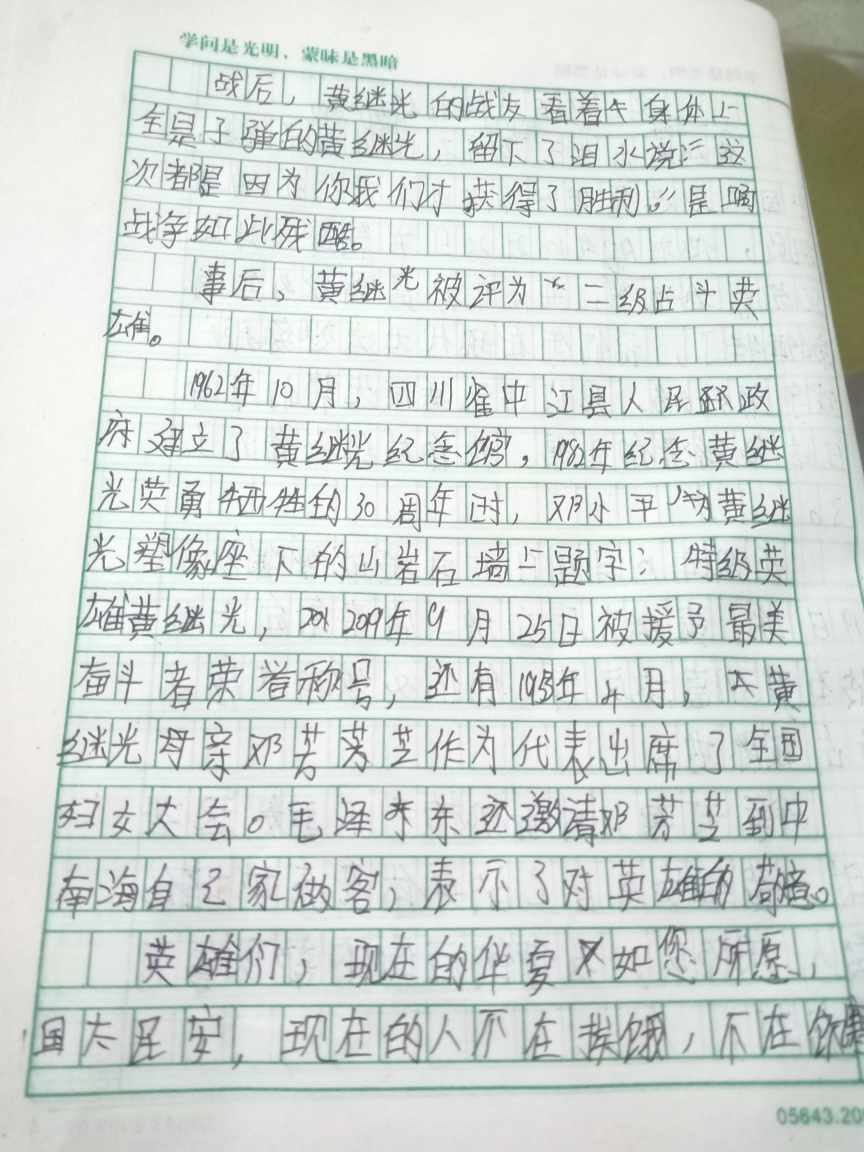 学问是光明，蒙昧是黑暗
战后，黄继光的战友看着身体上
全是子弹的黄继光，留下了泪水说："这
次都是因为你我们才获得了胜利。"是啊
战争如此残酷。
事后，黄继光被评为二级占斗英
雄。
1962年10月，四川省中江县人民政
府建立了黄继光纪念馆，1982年纪念黄继
光英勇牺牲的30周年时，邓小平为黄继
光塑像座下的山岩石墙上题字：特级英
雄黄继光，2019年9月25日被援予最美
奋斗者荣誉称号，还有1953年4月，黄
继光母亲邓芳芝作为代表出席了全国
妇女大会。毛泽东还邀请邓芳芝到中
南海自己家做客，表示了对英雄的
英雄们，现在的华夏如您所愿，
国太民安，现在的人不在挨饿，不在
05643.20